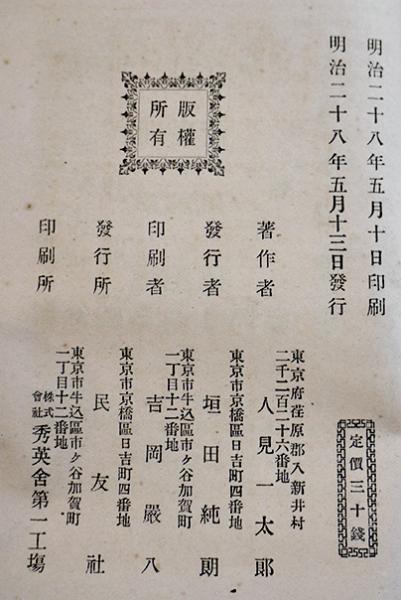 明治二十八年五月十日印刷
明治二十八年五月十三日發行
定價三十錢
版權
所有
著作者
東京府荏原郡入新井村
二千二百二十六番地
人見一太郎
發行者
東京市京橋區日吉町四番地
垣田純朗
印刷者
東京市牛込區市ヶ谷加賀町
一丁目十二番地
吉岡嚴八
發行所
東京市京橋區日吉町四番地
民友社
印刷所
東京市牛込區市ヶ谷加賀町
一丁目十二番地
株式會社 秀英舍第一工場